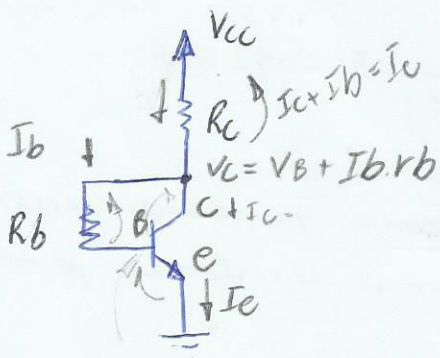 Vcc
Rc Ic+Ib=Ic
Ib
Vc = VB + Ib.rb
Rb
B
c Ic
e
Ie